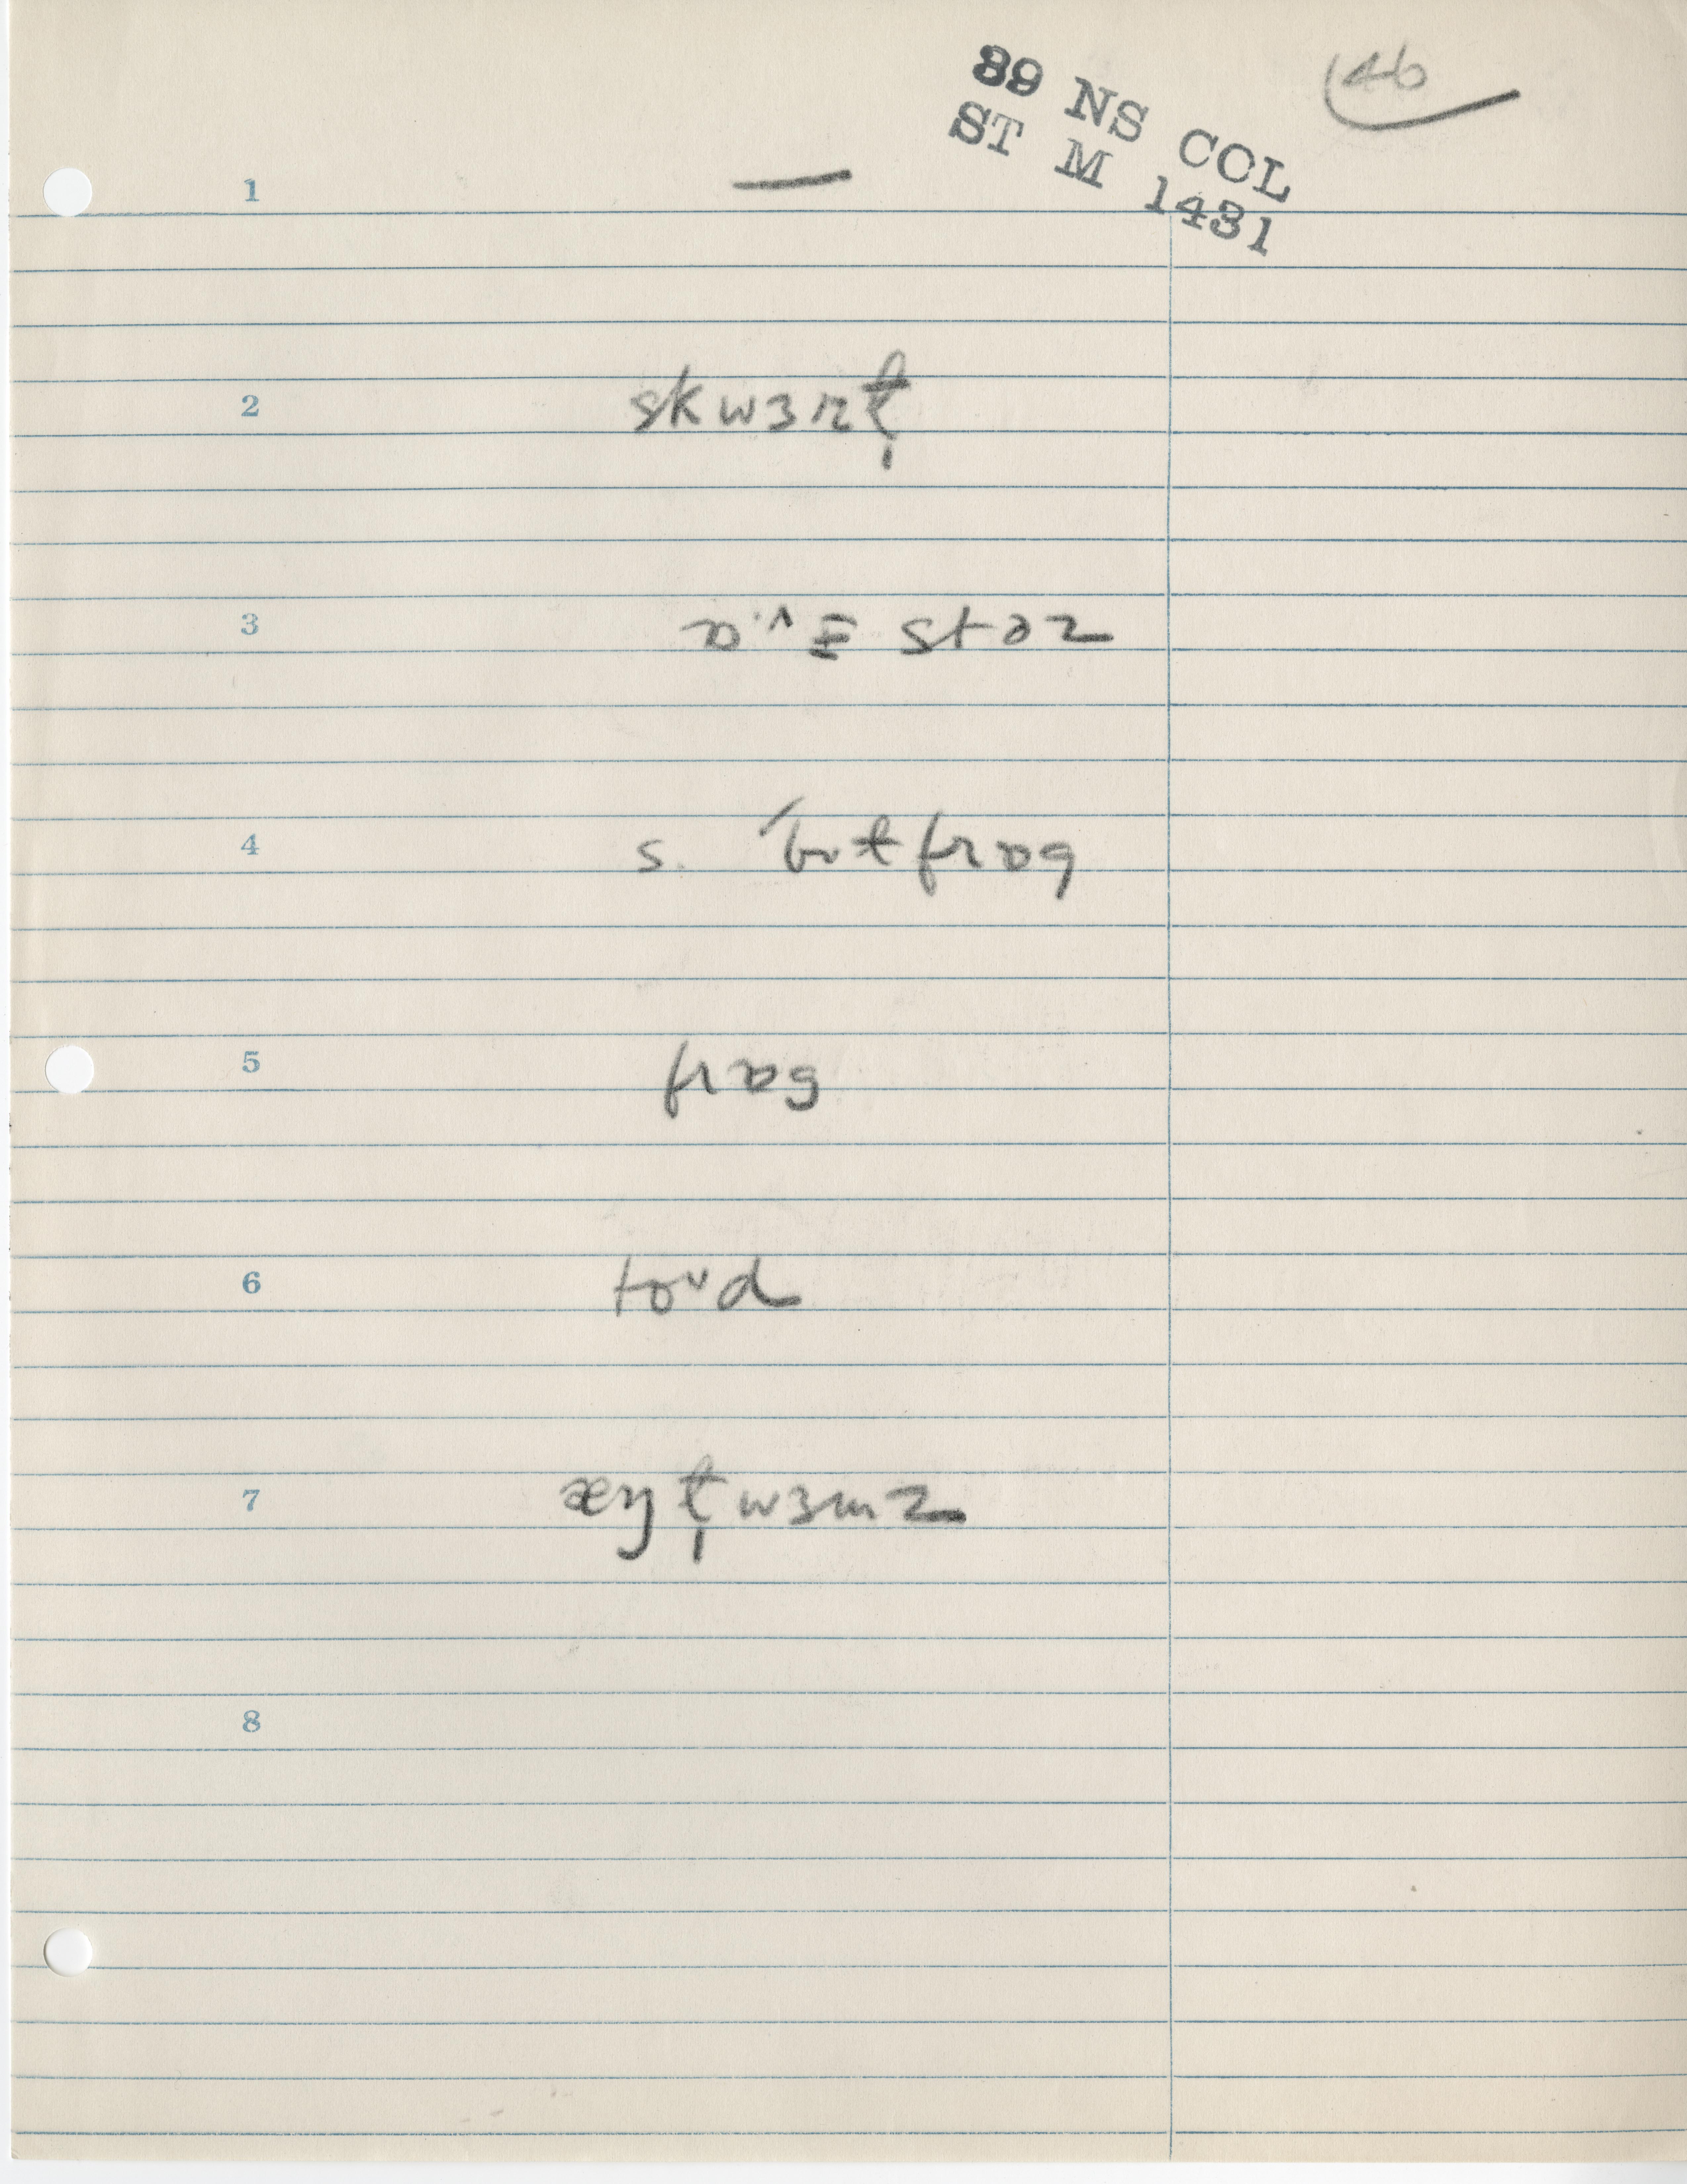 89 NS COL
ST M 1431
46
1 —
2 skwɜrɫ̩
3 ɔɪstəz
4 s. ˈbʊɫfrɒg
5 frɒg
6 toᴜd
7 æŋɫ̩wɜmz
8